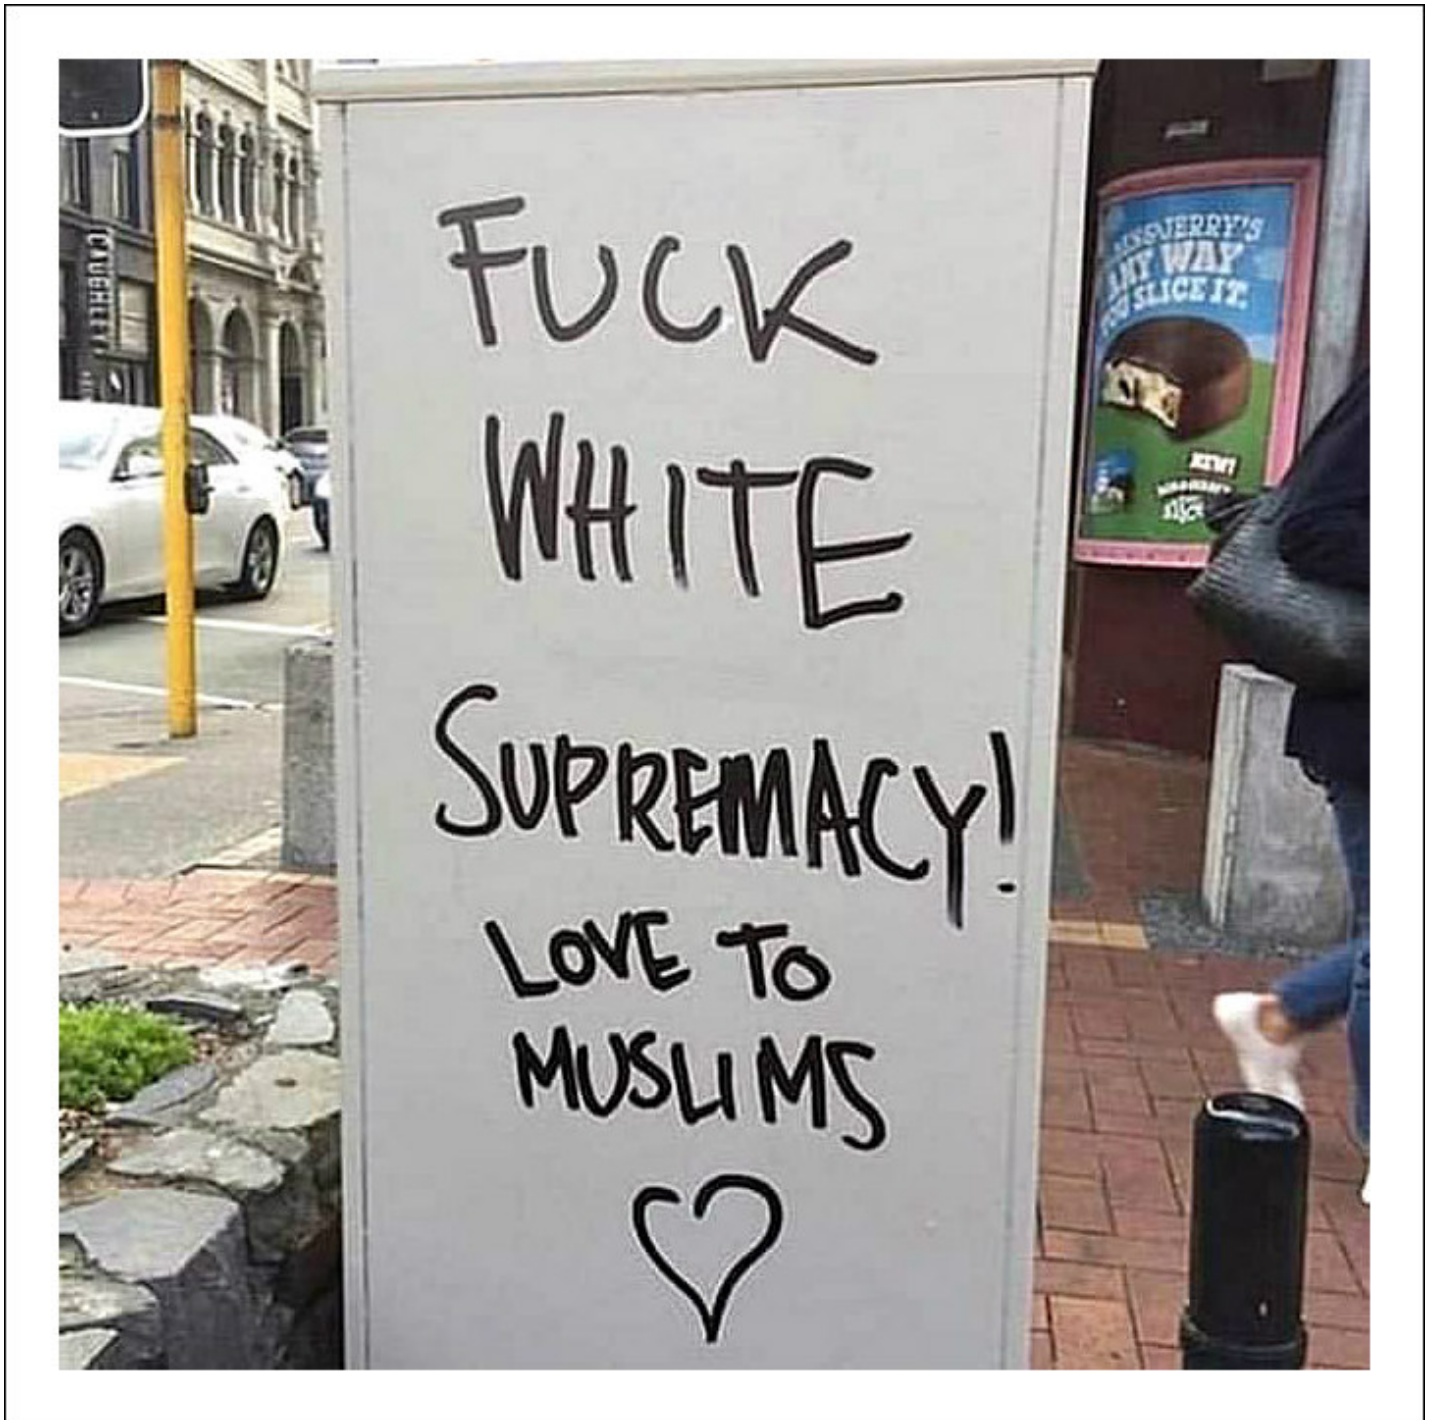 FUCK
WHITE
SUPREMACY!
LOVE TO
MUSLIMS
BEN&JERRY'S
ANY WAY
YOU SLICE IT.
NEW!